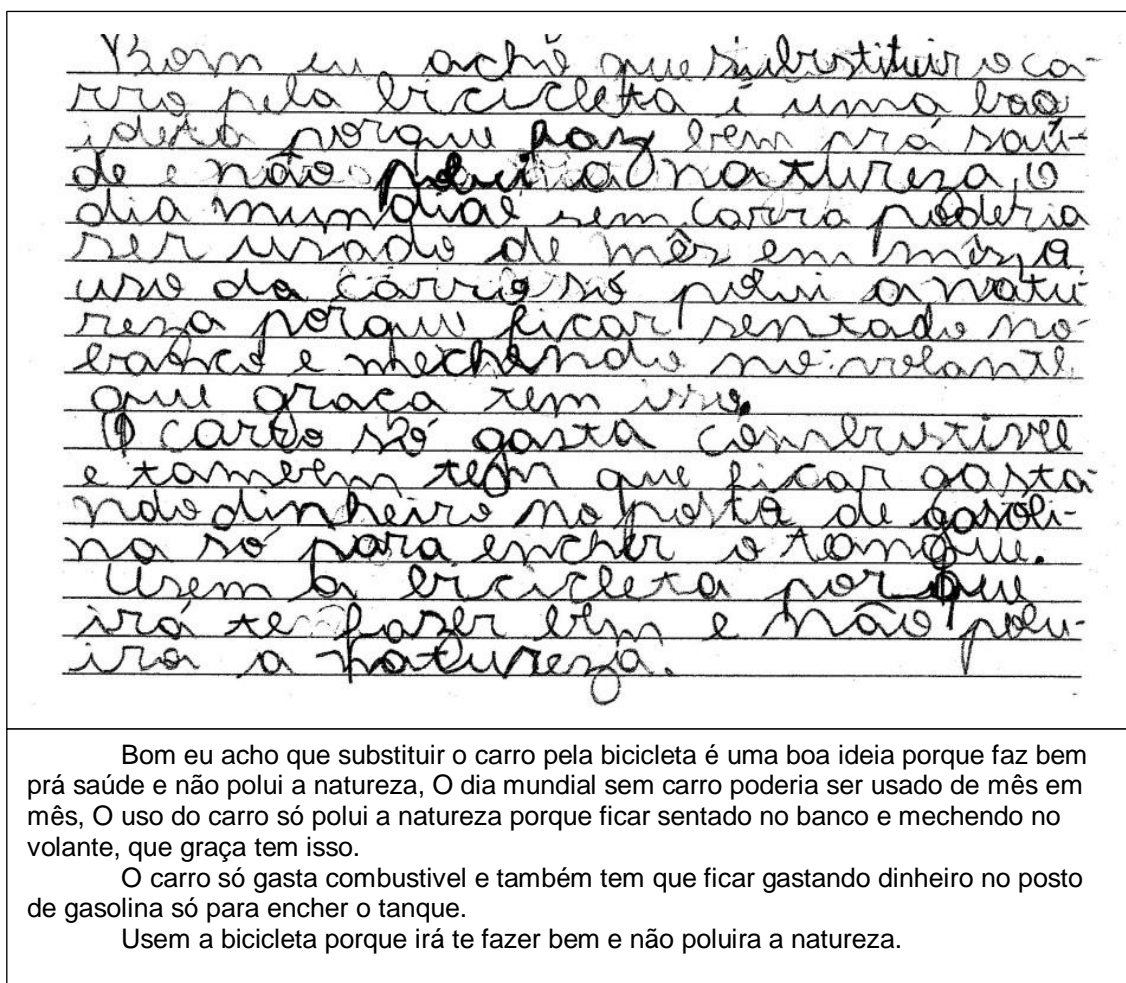 Bom eu acho que substituir o ca-
rro pela bicicleta é uma boa
ideia porque faz bem prá saú-
de e não polui a natureza, O
dia mundial sem carro poderia
ser usado de mês em mês, O
uso do carro só polui a natu
reza porque ficar sentado no
banco e mechendo no volante
que graça tem isso.
O carro só gasta combustivel
e tambem tem que ficar gasta-
ndo dinheiro no posto de gasoli-
na só para encher o tanque.
Usem a bicicleta porque
irá te fazer bem e não polu-
ira a natureza.
Bom eu acho que substituir o carro pela bicicleta é uma boa ideia porque faz bem
prá saúde e não polui a natureza, O dia mundial sem carro poderia ser usado de mês em
mês, O uso do carro só polui a natureza porque ficar sentado no banco e mechendo no
volante, que graça tem isso.
O carro só gasta combustivel e também tem que ficar gastando dinheiro no posto
de gasolina só para encher o tanque.
Usem a bicicleta porque irá te fazer bem e não poluira a natureza.